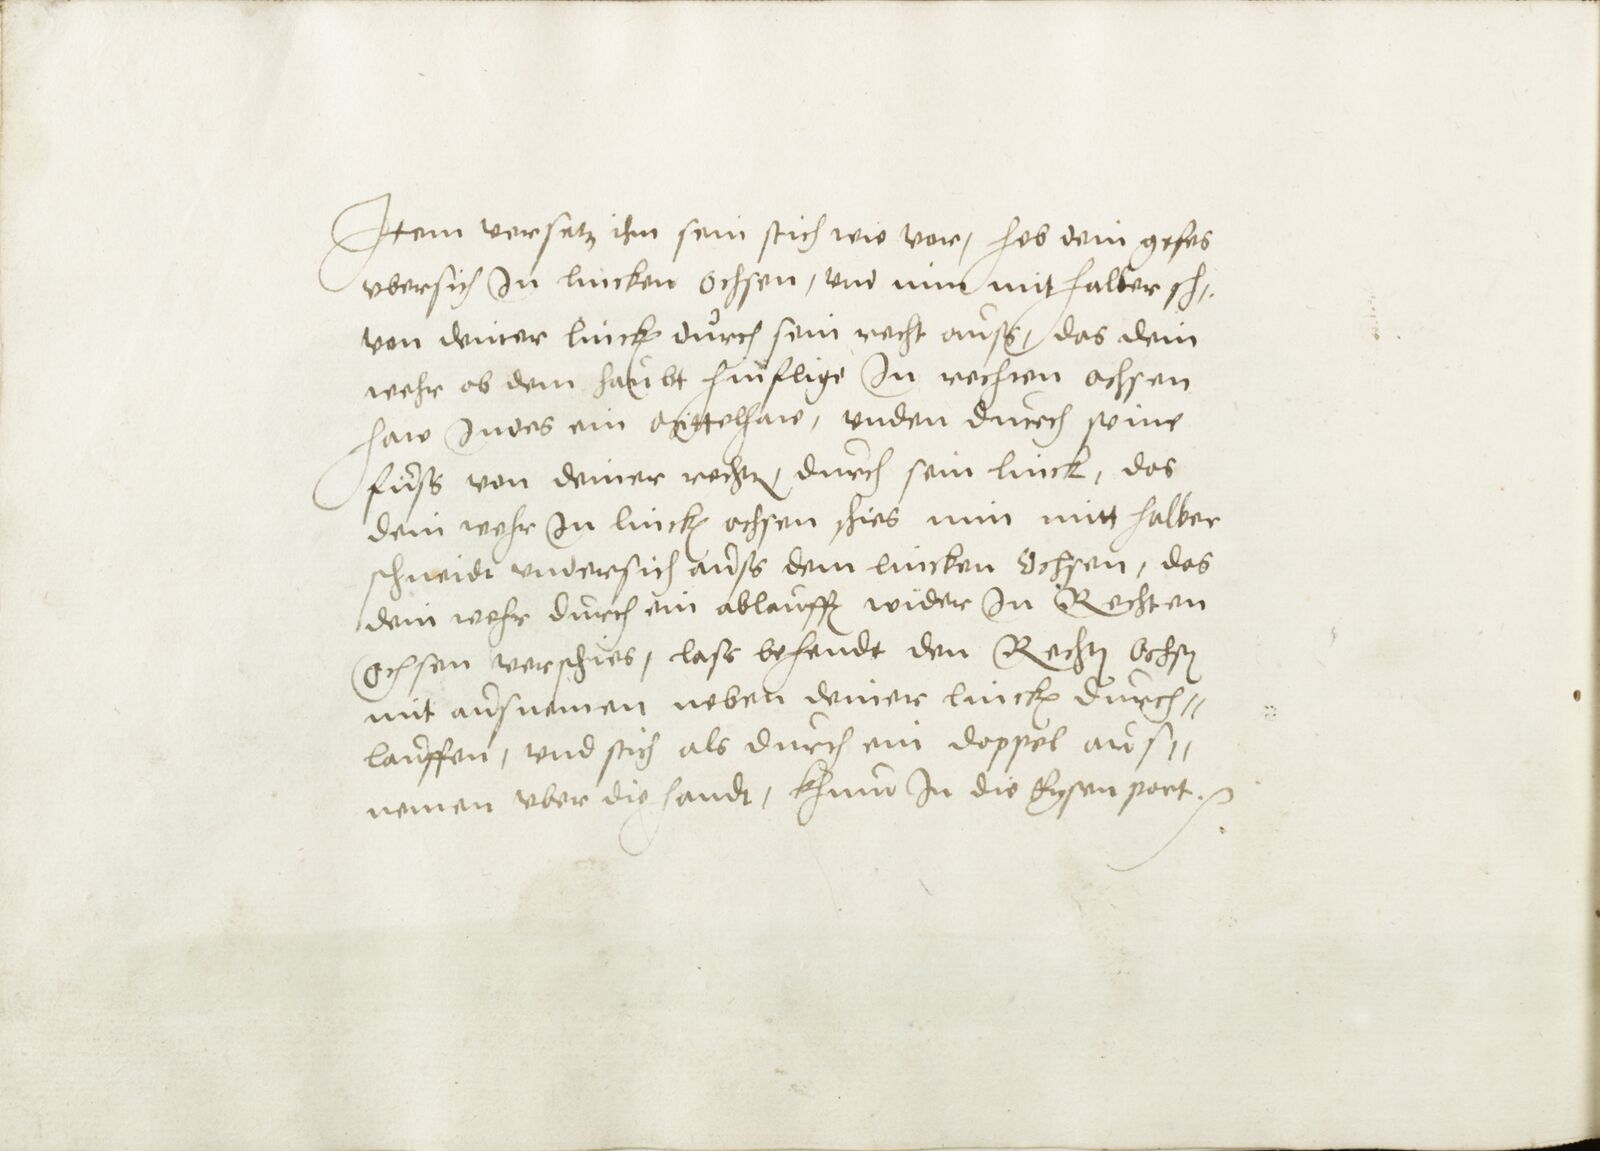 Item versatz ihm sein stich wie vor, heb dein gefes
vbersich In lincken Ochsen, vnd nim mit halber sch,.
von deiner linck durch sein recht auss, das dein
wehr ob dem haubt hinflige In rechten ochsen
haw Indes ein Mittelhaw, vnden durch seine
fuss von deiner recht, durch sein linck, das
dein wehr In linck ochsen schies nim mitt halber
schneidt vndersich auss dem lincken Ochsen, das
dein wehr durch ein ablauff wider In Rechten
Ochsen verschies, lass behendt den Recht Ochs
mit ausnemen neben deiner linck durch=
lauffen, vnd stich als durch ein doppel aus=
nemen vber die handt, khum In die Eysen port.